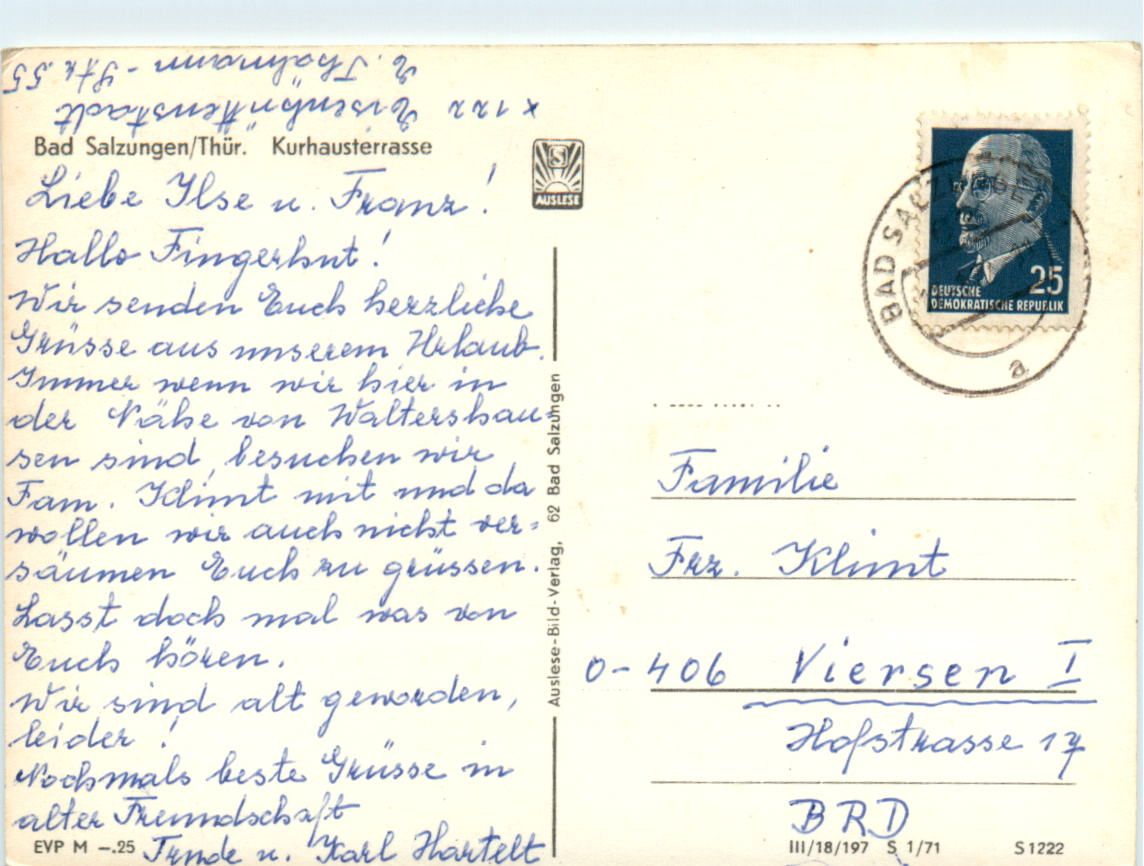 x 122 Eisenhüttenstadt
Thälmann - Str. 55
Bad Salzungen/Thür. Kurhausterrasse
AUSLESE
Liebe Ilse u. Franz!
Hallo Fingerhut!
Wir senden Euch herzliche
Grüsse aus unserem Urlaub.
Immer wenn wir hier in
der Nähe von Waltershau-
sen sind, besuchen wir
Fam. Klimt mit und da
wollen wir auch nicht ver=
säumen Euch zu grüssen.
Lasst doch mal was von
Euch hören.
Wir sind alt geworden,
leider!
Nochmals beste Grüsse in
alter Freundschaft
Trude u. Karl Hartelt
EVP M –.25
Auslese-Bild-Verlag, 62 Bad Salzungen
BAD SALZUNGEN
a
25
DEUTSCHE
DEMOKRATISCHE REPUBLIK
Familie
Frz. Klimt
0-406 Viersen I
Hofstrasse 17
BRD
III/18/197 S 1/71 S1222